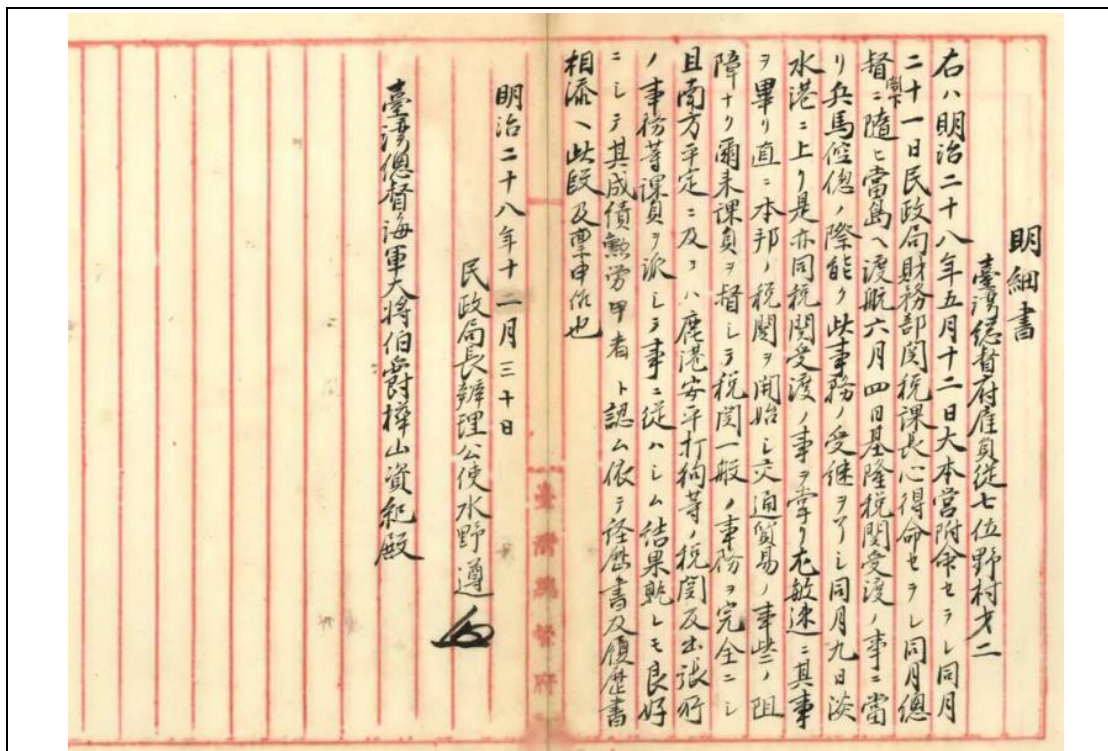 明細書
臺灣總督府雇員從七位野村才二
右ハ明治二十八年五月十二日大本営附命セラレ同月
二十一日民政局財務部関税課長心得命セラレ同月總
督閣下ニ隨ヒ當島ヘ渡航六月四日基隆税関受渡ノ事ニ當
リ兵馬倥偬ノ際能ク此事務ノ受継ヲ了シ同月九日淡
水港ニ上リ是亦同税関受渡ノ事ヲ掌リ尤敏速ニ其事
ヲ畢リ直ニ本邦ノ税関ヲ開始シ交通貿易ノ事些ノ阻
障ナク爾来課員ヲ督シテ税関一般ノ事務ヲ完全ニシ
且南方平定ニ及フハ鹿港安平打狗等ノ税関及出張所
ノ事務等課員ヲ派シテ事ニ從ハシム結果孰レモ良好
ニシテ其成績勲労甲者ト認ム依テ経歴書及履歴書
相添ヘ此段及稟申候也
明治二十八年十二月三十日
民政局長辦理公使水野遵
臺灣總督海軍大将伯爵樺山資紀殿
臺灣總督府